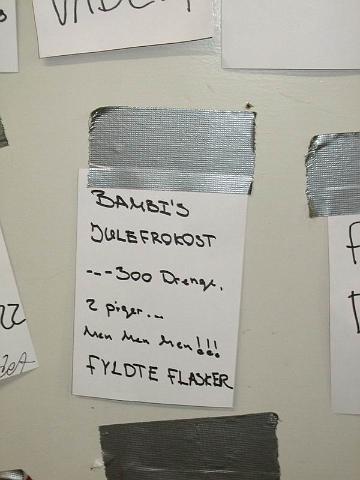 BAMBI'S
JULEFROKOST
---300 Drenge.
2 piger...
Men Men Men!!!
FYLDTE FLASKER
22